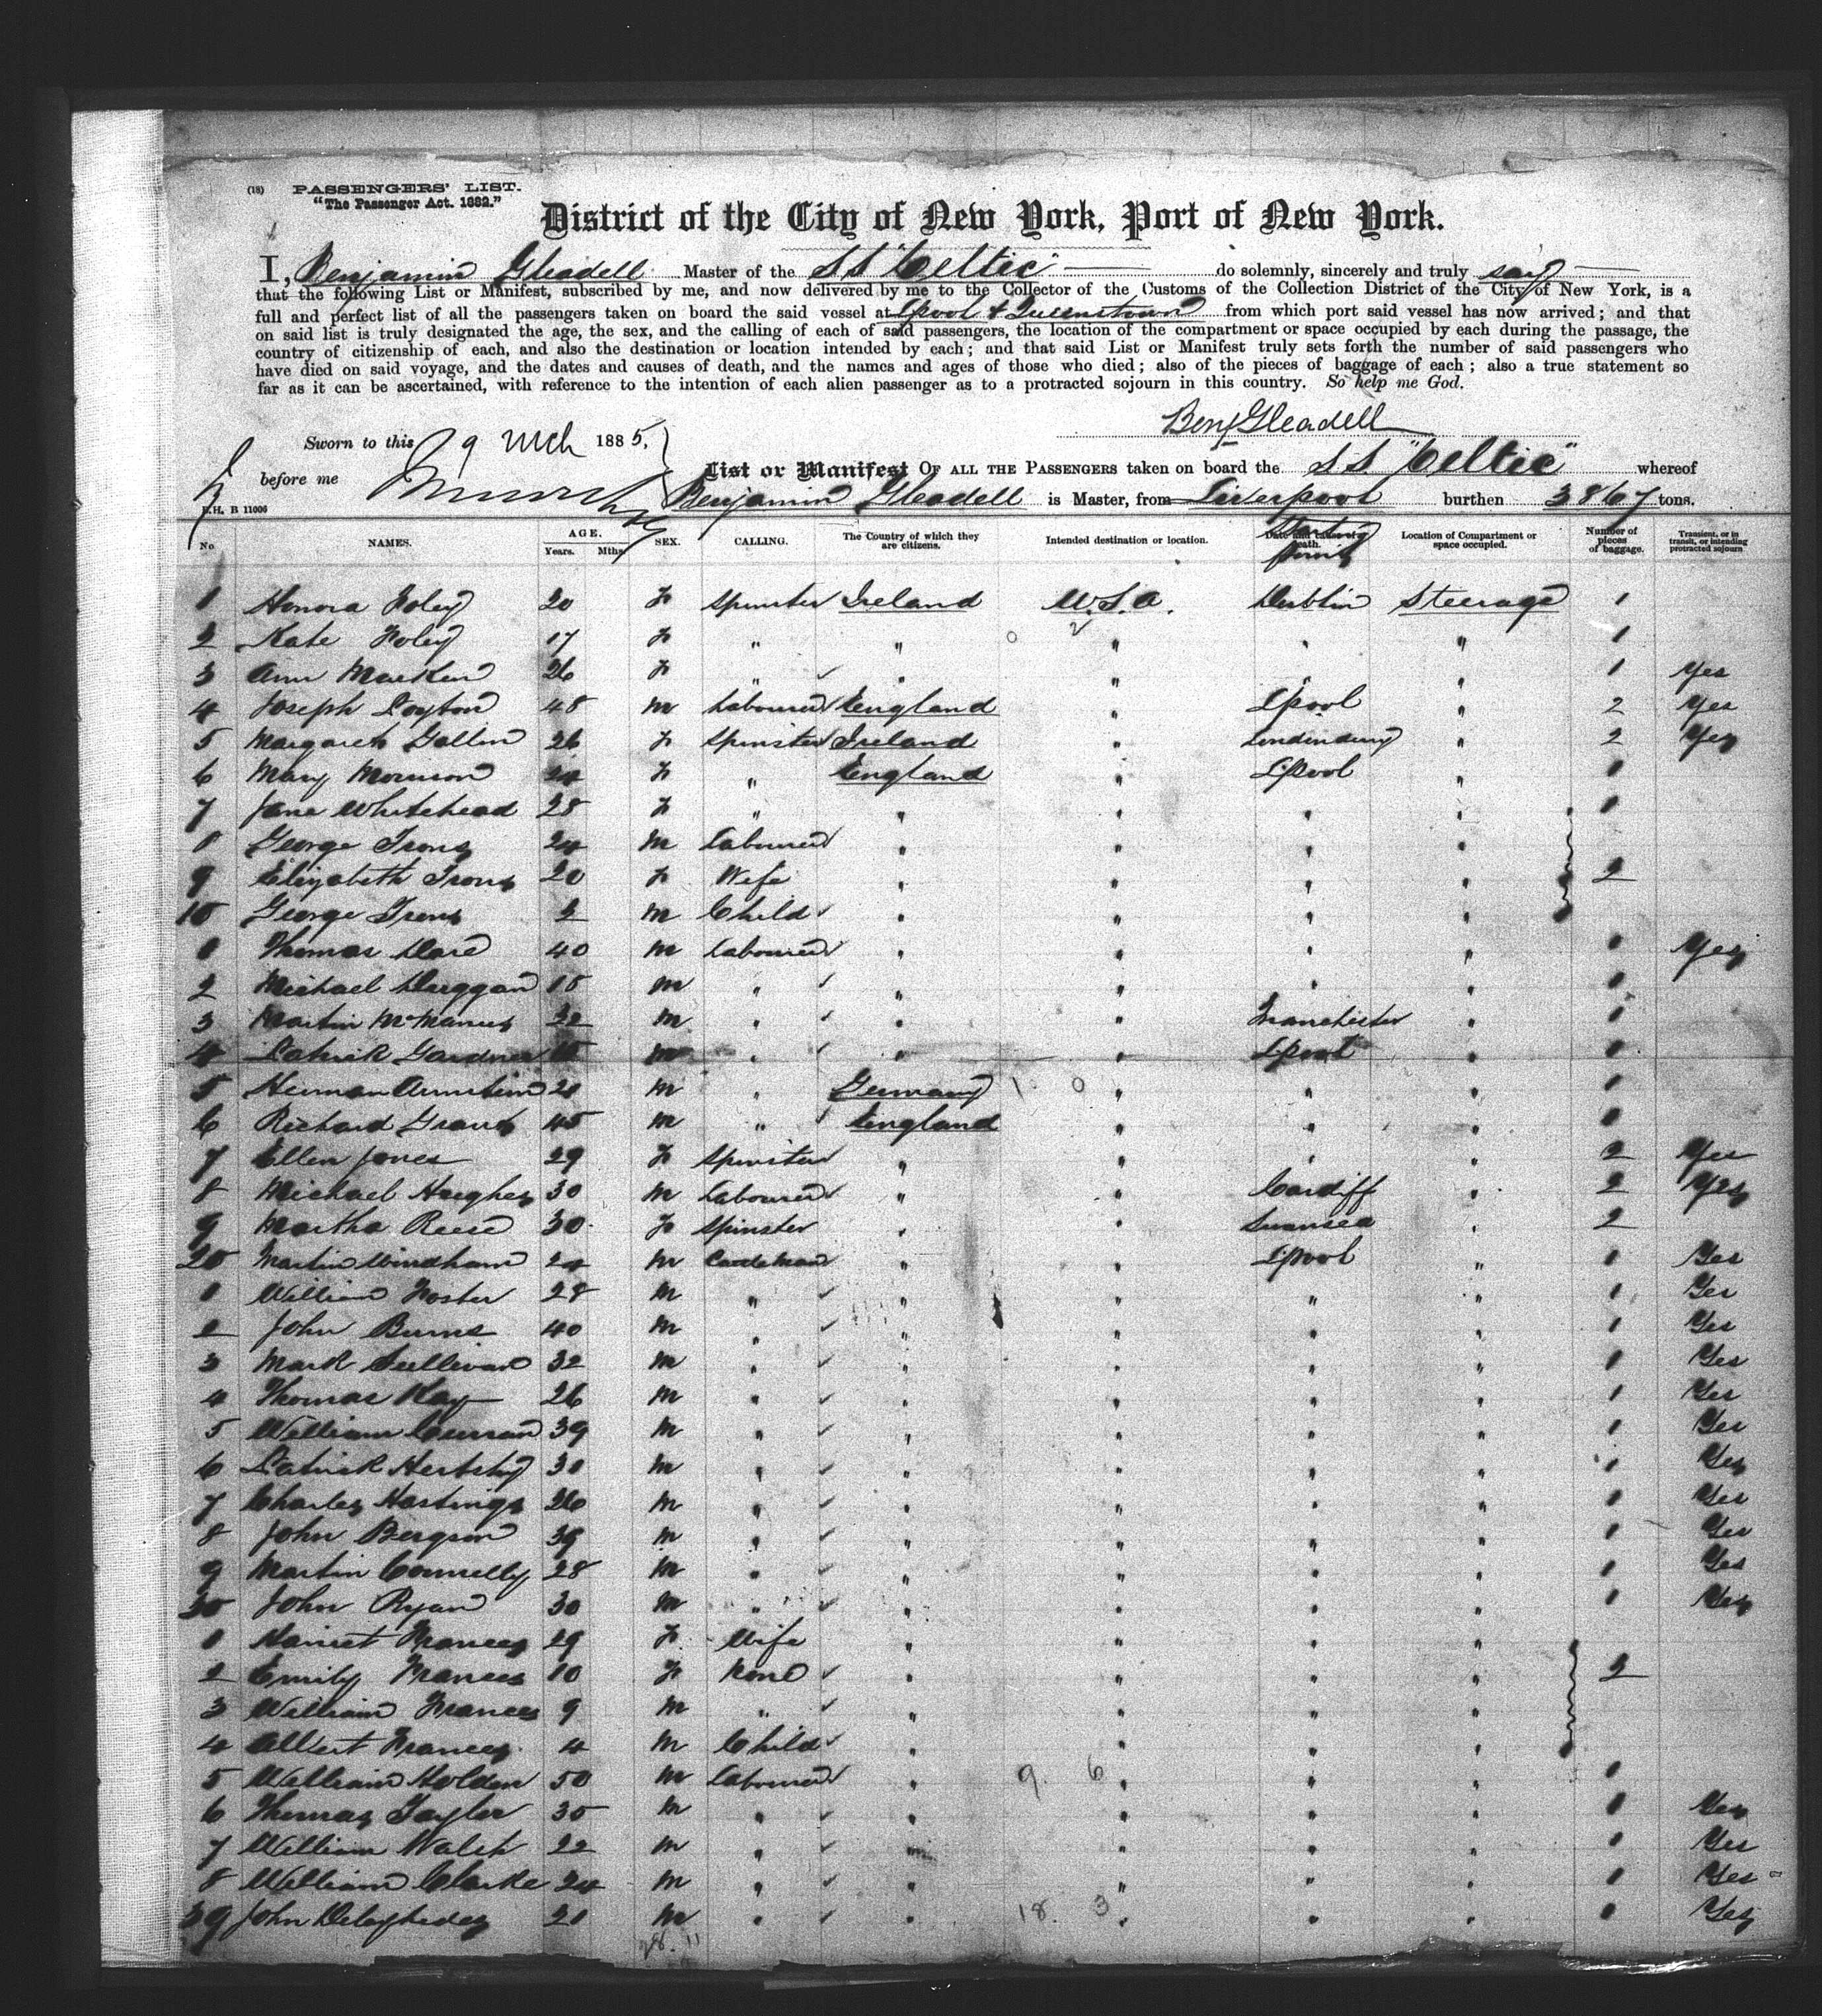 (18) PASSENGERS' LIST.
"The Passenger Act. 1882."
District of the City of New York, Port of New York.
I, Benjamin Gleadell Master of the SS "Celtic" do solemnly, sincerely and truly say
that the following List or Manifest, subscribed by me, and now delivered by me to the Collector of the Customs of the Collection District of the City of New York, is a
full and perfect list of all the passengers taken on board the said vessel at Lpool & Queenstown from which port said vessel has now arrived; and that
on said list is truly designated the age, the sex, and the calling of each of said passengers, the location of the compartment or space occupied by each during the passage, the
country of citizenship of each, and also the destination or location intended by each; and that said List or Manifest truly sets forth the number of said passengers who
have died on said voyage, and the dates and causes of death, and the names and ages of those who died; also of the pieces of baggage of each; also a true statement so
far as it can be ascertained, with reference to the intention of each alien passenger as to a protracted sojourn in this country. So help me God.
Benj Gleadell
Sworn to this 9 Mch 1885,
before me
List or Manifest OF ALL THE PASSENGERS taken on board the SS "Celtic" whereof
Benjamin Gleadell is Master, from Liverpool burthen 3867 tons.
B 11006
No NAMES. AGE. Years. Mths. SEX. CALLING. The Country of which they are citizens. Intended destination or location. Location of Compartment or space occupied. Number of pieces of baggage. Transient, or in transit, or intending protracted sojourn
1 Honora Foley 20 F Spinster Ireland U.S.A. Dublin Steerage 1
2 Kate Foley 17 F " " " " " 1
3 Ann 26 F " " " " 1 Yes
4 Joseph Layton 48 M Labourer England " Lpool " 2 Yes
5 Margaret 26 F Spinster Ireland " Londonderry " 2 Yes
6 Mary Morrison 24 F " England " Lpool " 1
7 Jane Whitehead 28 F " " " " " 1
8 George Irons 24 M Labourer " " " "
9 Elizabeth Irons 20 F Wife " " " " 2
10 George Irons 2 M Child " " " "
1 Thomas Dare 40 M Labourer " " " " 1 Yes
2 Michael Duggan 18 M " " " " " 1
3 Martin McManus 32 M " " " Manchester " 1
4 Patrick Gardner M " " " Lpool " 1
5 Herman M " Germany " " " 1
6 Richard Grant 45 M " England " " " 1
7 Ellen Jones 29 F Spinster " " " " 2 Yes
8 Michael Hughes 30 M Labourer " " Cardiff " 2 Yes
9 Martha Reese 30 F Spinster " " Swansea " 2
20 Martin Windham 24 M Cattleman " " Lpool " 1 Yes
1 William Foster 28 M " " " " " 1 Yes
2 John Burns 40 M " " " " " 1 Yes
3 Mark Sullivan 32 M " " " " " 1 Yes
4 Thomas Kay 26 M " " " " " 1 Yes
5 William Curran 39 M " " " " " 1 Yes
6 Patrick 30 M " " " " " 1 Yes
7 Charles Hastings 26 M " " " " " 1 Yes
8 John Bergson M " " " " " 1 Yes
9 Martin Connelly 28 M " " " " " 1 Yes
30 John Ryan 30 M " " " " " 1 Yes
1 Harriet Frances 29 F Wife " " " "
2 Emily Frances 10 F None " " " " 2
3 William Frances 9 M " " " " "
4 Albert Frances 4 M Child " " " "
5 William Holden 50 M Labourer " " " " 1
6 Thomas Taylor 35 M " " " " " 1 Yes
7 William Walsh 22 M " " " " " 1 Yes
8 William Clarke 24 M " " " " " 1 Yes
39 John 21 M " " " " " 1 Yes